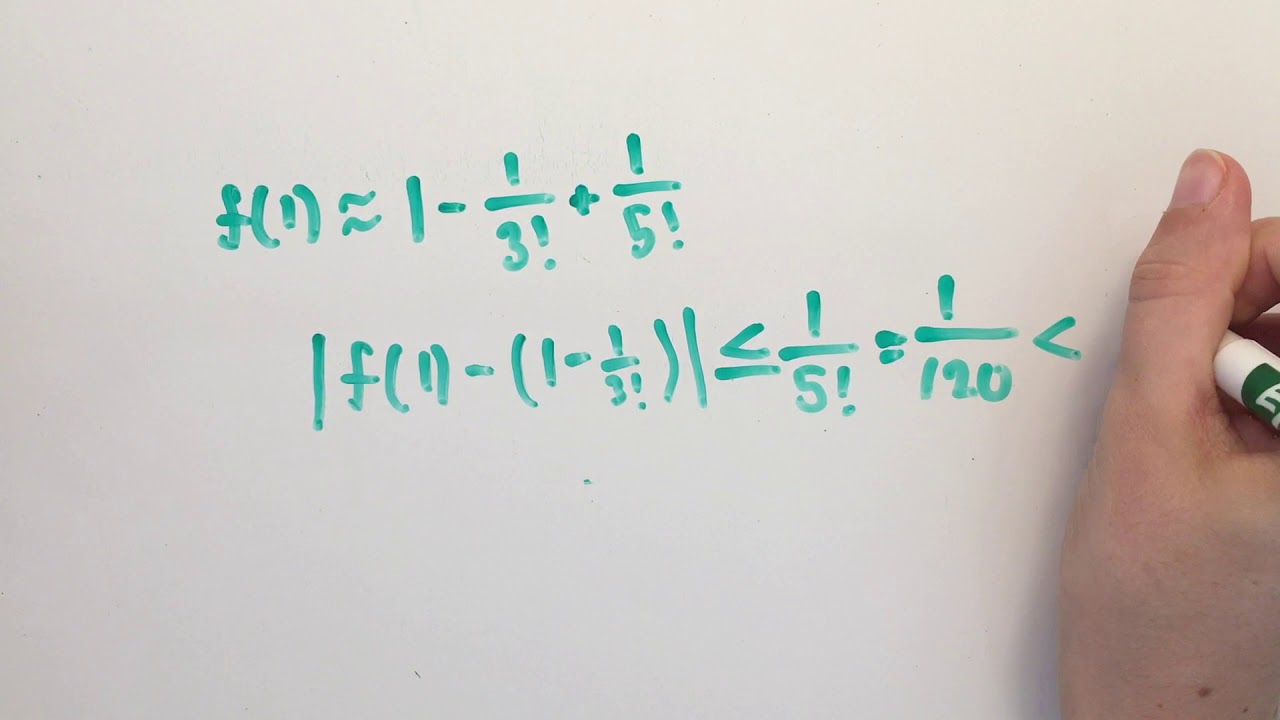 f(1) ≈ 1 - 1/3! + 1/5!
|f(1) - (1 - 1/3!)| ≤ 1/5! = 1/120 <